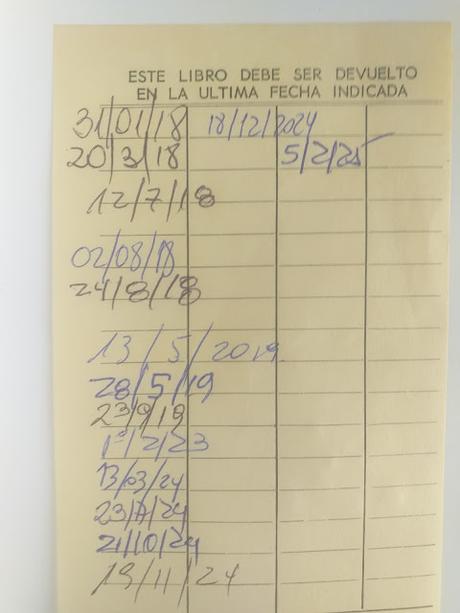 ESTE LIBRO DEBE SER DEVUELTO
EN LA ULTIMA FECHA INDICADA
31/01/18
20/3/18
12/7/18
02/08/18
24/8/18
13/5/2019
28/5/19
23/9/19
1º/2/23
13/03/24
23/7/24
21/10/24
19/11/24
18/12/2024
5/2/25